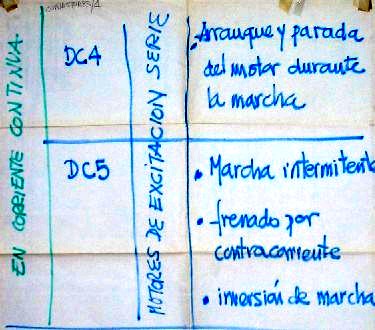 EN CORRIENTE CONTINUA
DC4
MOTORES DE EXCITACION SERIE
Arranque y parada
del motor durante
la marcha
DC5
• Marcha intermitente
• frenado por
contracorriente
• inversión de marcha